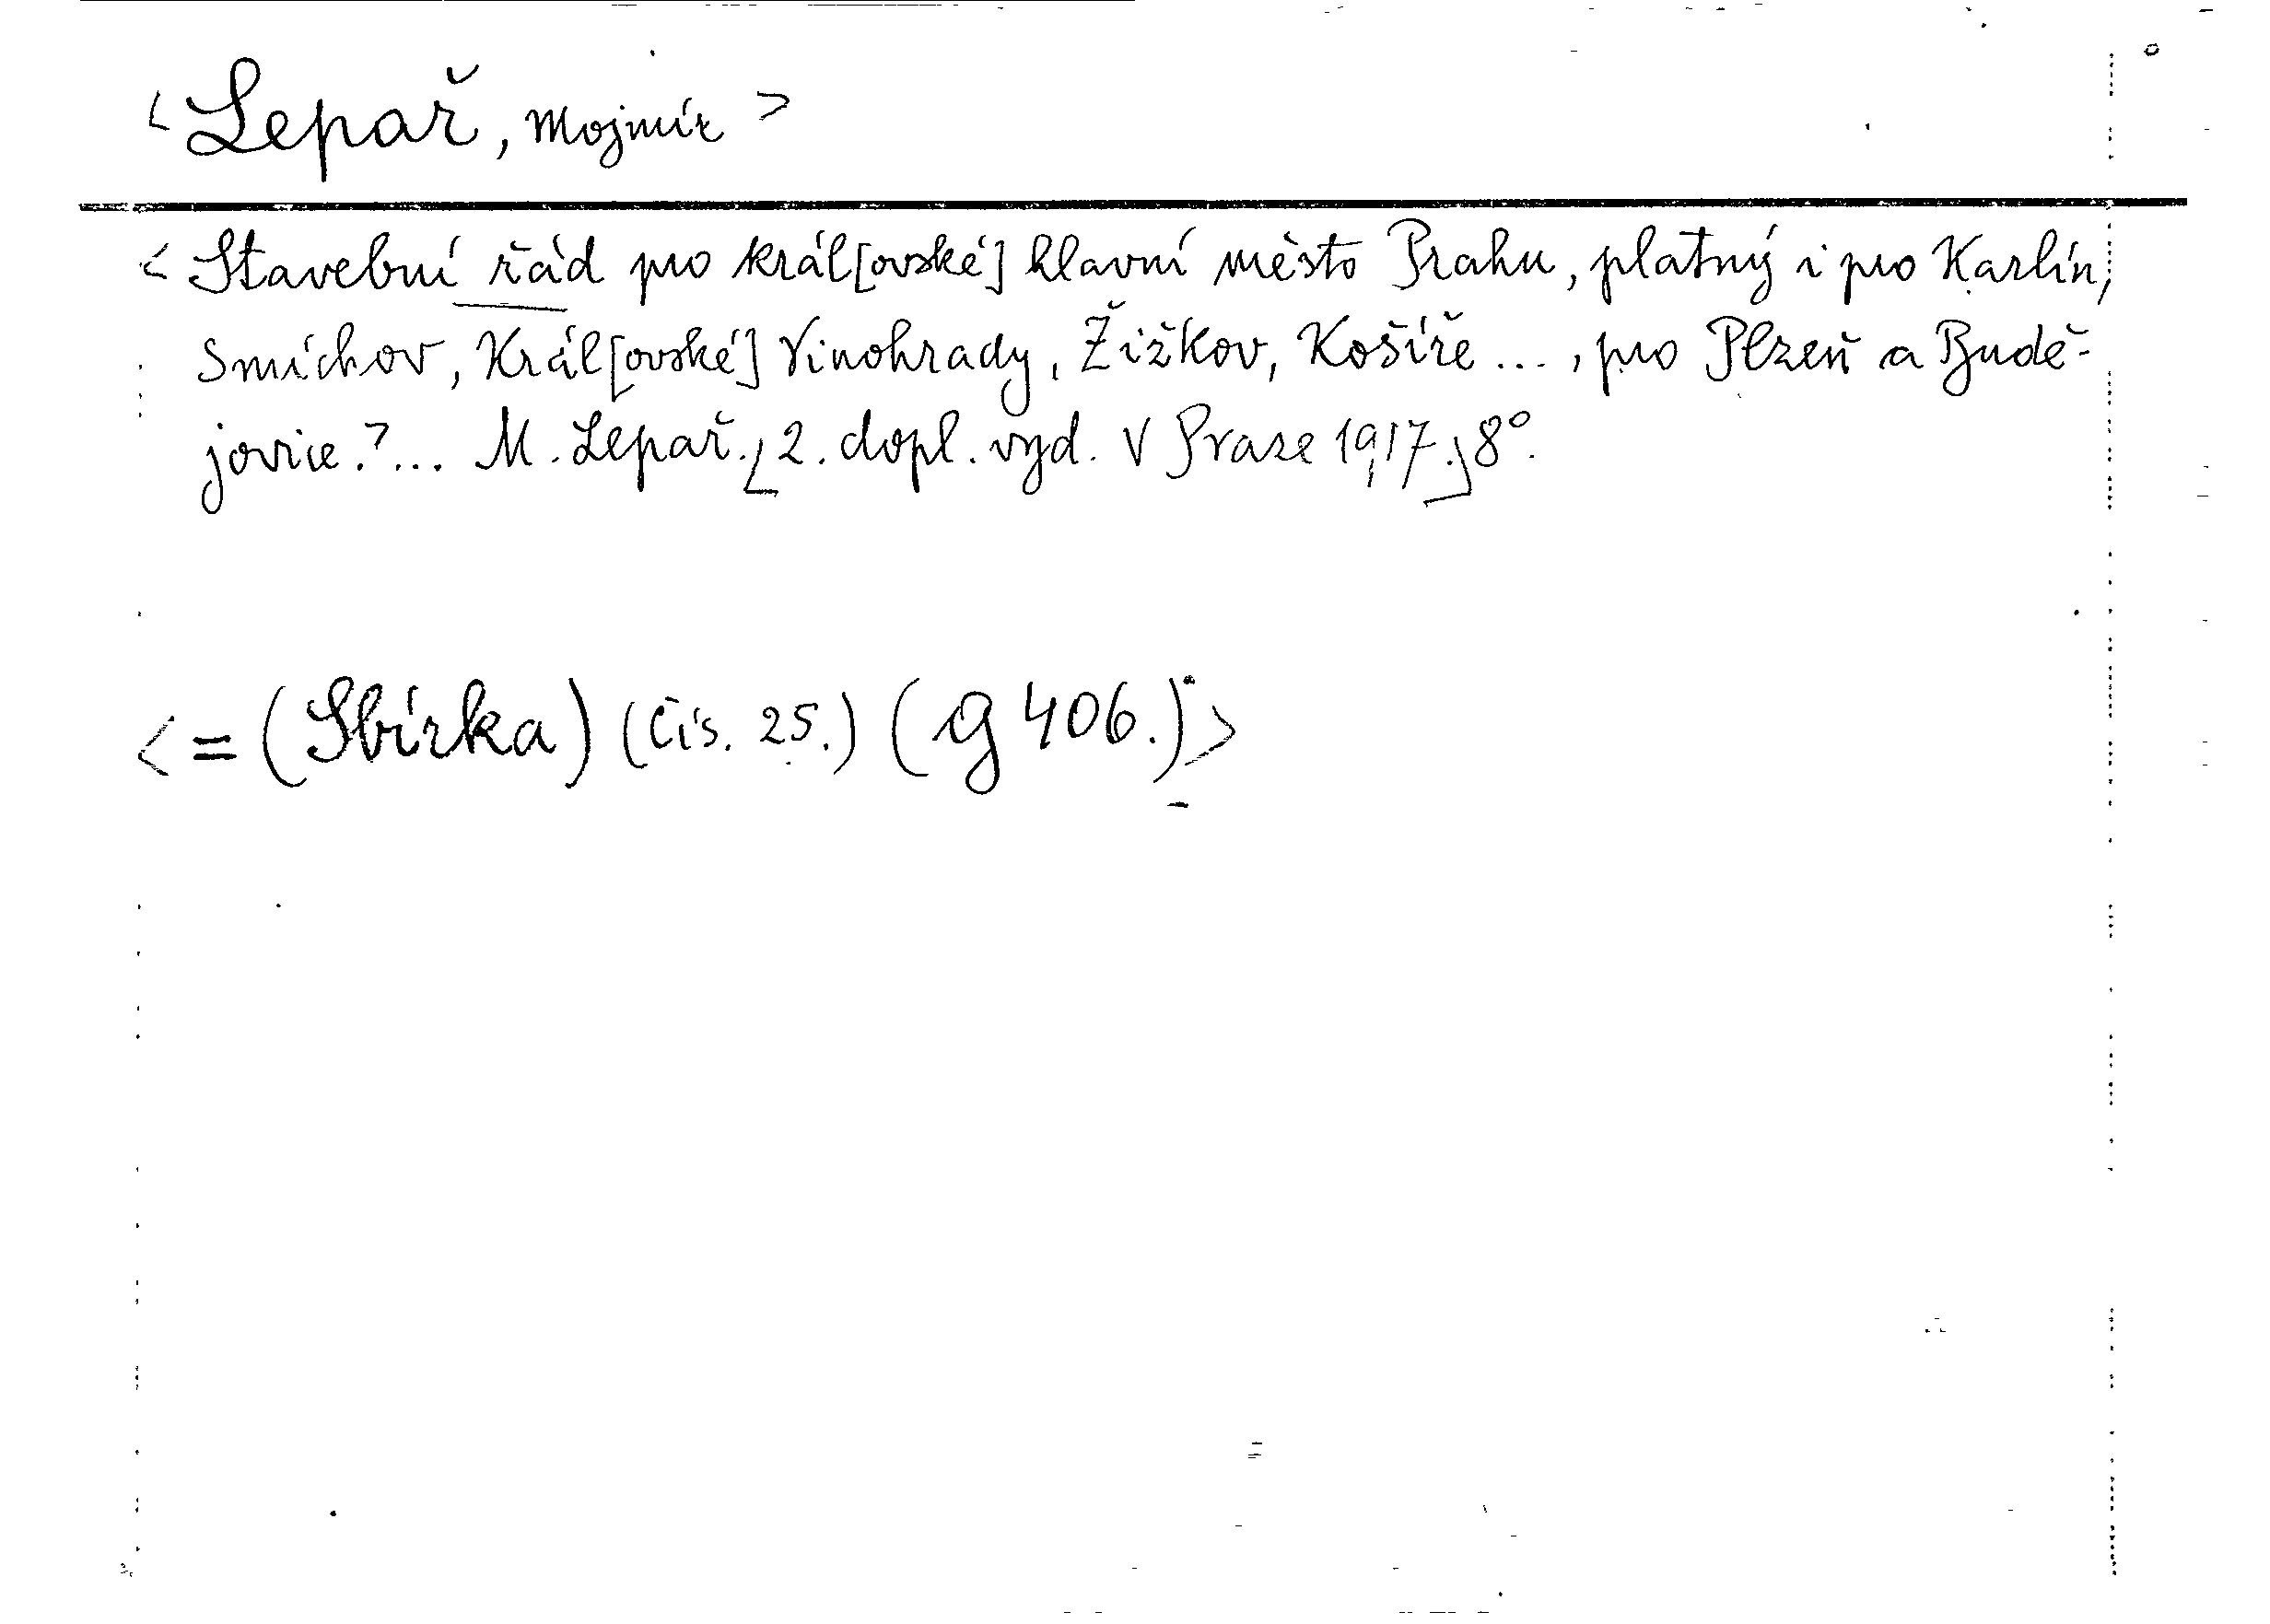 <Lepař, Mojmír>
<Stavební řád pro král[ovské] hlavní město Prahu, platný i pro Karlín,
Smíchov, Král[ovské] Vinohrady, Žižkov, Košíře ..., pro Plzeň a Budě-
jovice.?... M. Lepař. [2. dopl. vyd. V Praze 1917.] 8°.
<= (Sbírka) (čís. 25.) (g 406.)>